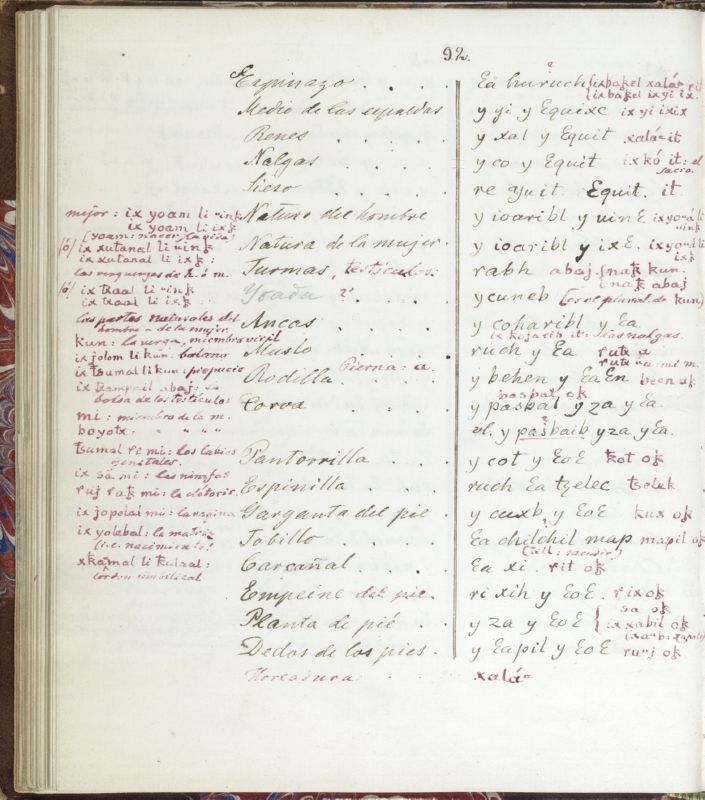 92.
Espinazo . . . . Ea huruch ? { ix bakel xalá rit
{ ix bakel ix yi ix.
Medio de las espaldas y yi y Equixe ix yi ixix
Renes . . . . y xal y Equit xalá it
Nalgas . . . . y co y Equit ix kó it: el sacro.
Sieso re quit Equit. it.
mejor: ix yoam li uink Natura del hombre y ioaribl y uinE ix yoáli uink
ix yoam li ixk
(yoam: nacer, la viña)
/ó/ ix xutanal li uink Natura de la mujer. y ioaribl y ixE. ix yoáli ixk
ix xutanal li ixk:
las verguenzas de h. ó m. Turmas, testículos: rabh abaj { nak kun.
{ nak abaj
/ó/ ix txaal li uink Yoadu ?. ycuneb (es el plural de kun)
ix txaal li ixk
las partes naturales del hombre o de la mujer. Ancas . . . y coharibl y Ea
ix kojarib it: las nalgas.
kun: la verga, miembro viril
ix jolom li kun: balano Muslo Pierna: a. ruch y Ea rutx a
ix tsumal li kun: prepucio Rodilla . . y behen y EaEn been ak
ix txampail abaj: la bolsa de los testículos: Corva . . y pasbal y za y Ea.
bospal ok
mi: miembro de la m.
boyotx: " " " " vl. y pasbaib y za, y Ea.
tsumal re mi: los labios genitales. Pantorrilla . . . y cot y EoE kot ok
ix sá mi: las ninfas
ruj rak mi: la clítoris. Espinilla . . . ruch Ea tzelec tselek
ix jopolai mi: la vagina Garganta del pie . y cuxb y EoE kux ok
ix yolebal: la matriz
(i.e. nacimiento!) Tobillo . . . Ea chilchil map mapil ok
(tsil: sacudir)
xkámal li kulaal:
cordon umbilical Carcañal . . Ea xi. rit ok
Empeine del pie. ri xih y EoE. rix ok
Planta de pié . . y za y EoE { sa ok
{ ix xabil ok
(xab: zapato)
Dedos de los pies. y Eapil y EoE ruuj ok
Horcadura: . . xalá